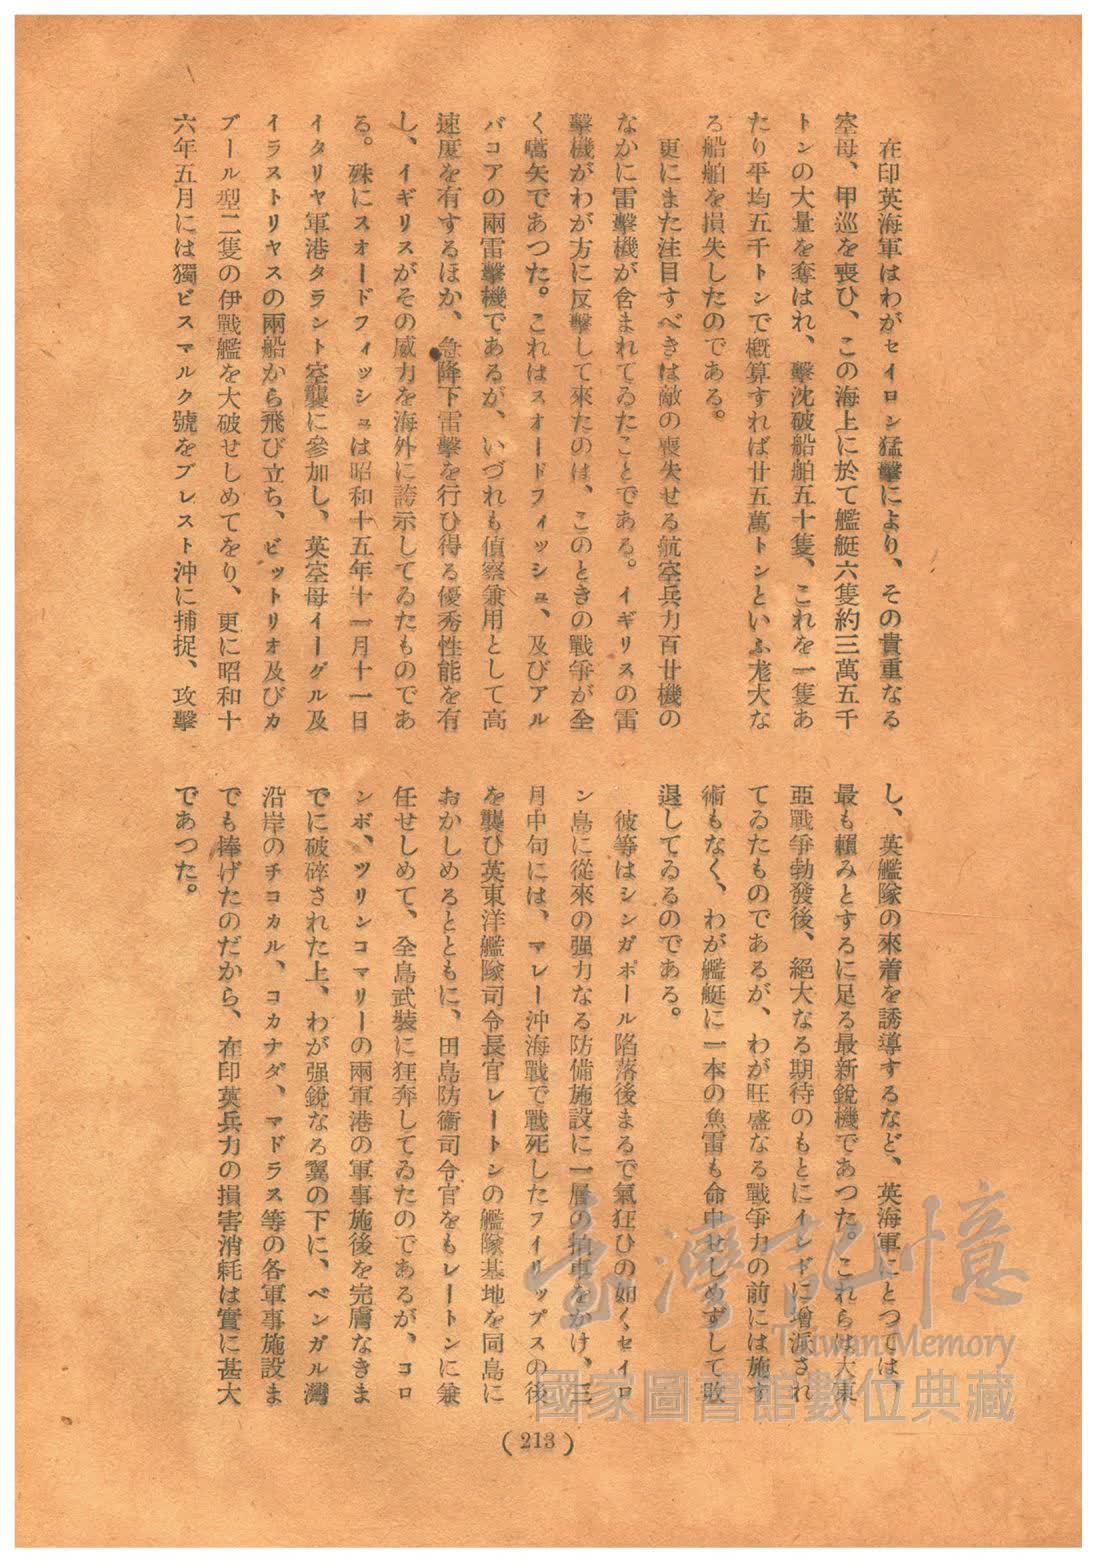 在印英海軍はわがセイロン猛擊により、その貴重なる
空母、甲巡を喪ひ、この海上に於て艦艇六隻約三萬五千
トンの大量を奪はれ、擊沈破船舶五十隻、これを一隻あ
たり平均五千トンで概算すれば廿五萬トンといふ尨大な
る船舶を損失したのである。
更にまた注目すべきは敵の喪失せる航空兵力百廿機の
なかに雷擊機が含まれてゐたことである。イギリスの雷
擊機がわが方に反擊して來たのは、このときの戰爭が全
く嚆矢であつた。これはスオードフィッシュ、及びアル
バコアの兩雷擊機であるが、いづれも偵察兼用として高
速度を有するほか、急降下雷擊を行ひ得る優秀性能を有
し、イギリスがその威力を海外に誇示してゐたものであ
る。殊にスオードフィッシュは昭和十五年十一月十一日
イタリヤ軍港タラント空襲に參加し、英空母イーグル及
イラストリヤスの兩船から飛び立ち、ビットリオ及びカ
ブール型二隻の伊戰艦を大破せしめてをり、更に昭和十
六年五月には獨ビスマルク號をブレスト沖に捕捉、攻擊
し、英艦隊の來着を誘導するなど、英海軍にとつては、
最も賴みとするに足る最新銳機であつた。これらは大東
亞戰爭勃發後、絕大なる期待のもとにインドに增派され
てゐたものであるが、わが旺盛なる戰爭力の前には施す
術もなく、わが艦艇に一本の魚雷も命中せしめずして敗
退してゐるのである。
彼等はシンガポール陷落後まるで氣狂ひの如くセイロ
ン島に從來の强力なる防備施設に一層の拍車をかけ、三
月中旬には、マレー沖海戰で戰死したフイリップスの後
を襲ひ英東洋艦隊司令長官レートンの艦隊基地を同島に
おかしめるとともに、田島防衞司令官をもレートンに兼
任せしめて、全島武裝に狂奔してゐたのであるが、コロ
ンボ、ツリンコマリーの兩軍港の軍事施後を完膚なきま
でに破碎された上、わが强銳なる翼の下に、ベンガル灣
沿岸のチコカル、コカナダ、マドラス等の各軍事施設ま
でも捧げたのだから、在印英兵力の損害消耗は實に甚大
であつた。
( 213 )
臺灣記憶
Taiwan Memory
國家圖書館數位典藏